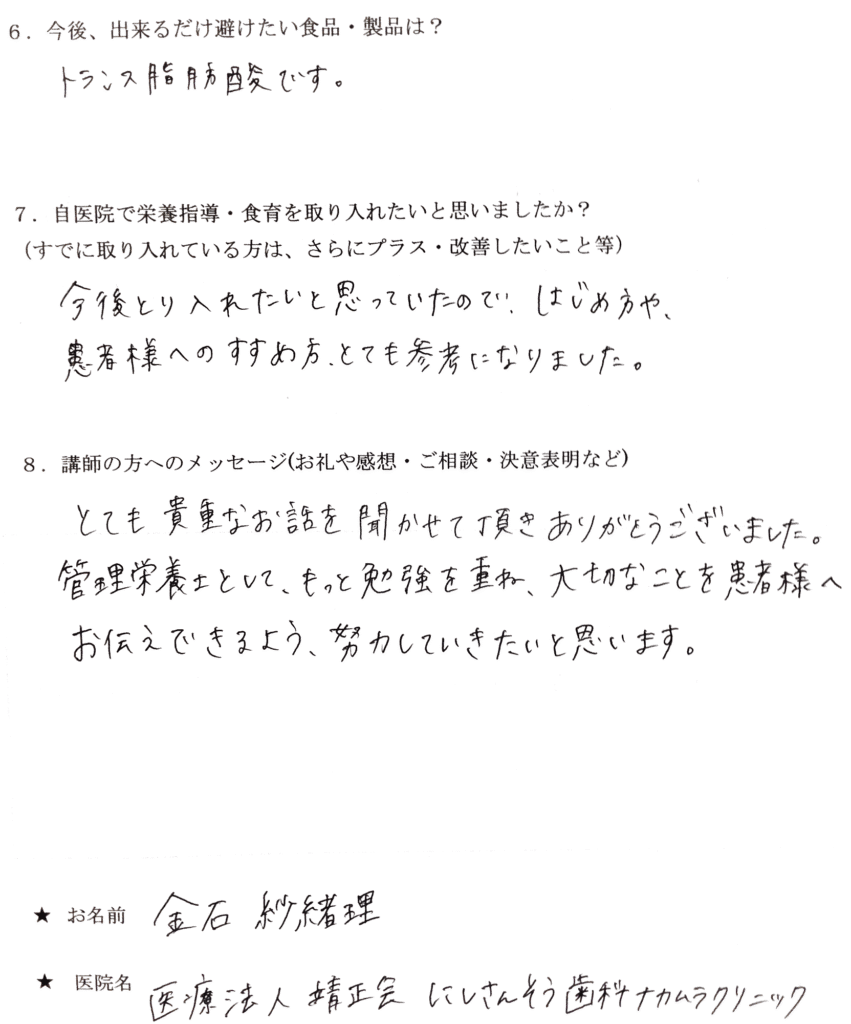 6．今後、出来るだけ避けたい食品・製品は？
トランス脂肪酸です。
7．自医院で栄養指導・食育を取り入れたいと思いましたか？
(すでに取り入れている方は、さらにプラス・改善したいこと等)
今後とり入れたいと思っていたので、はじめ方や、
患者様へのすすめ方、とても参考になりました。
8．講師の方へのメッセージ(お礼や感想・ご相談・決意表明など)
とても貴重なお話を聞かせて頂きありがとうございました。
管理栄養士として、もっと勉強を重ね、大切なことを患者様へ
お伝えできるよう、努力していきたいと思います。
★ お名前 金石 紗緒理
★ 医院名 医療法人 靖正会 にしさんそう歯科ナカムラクリニック